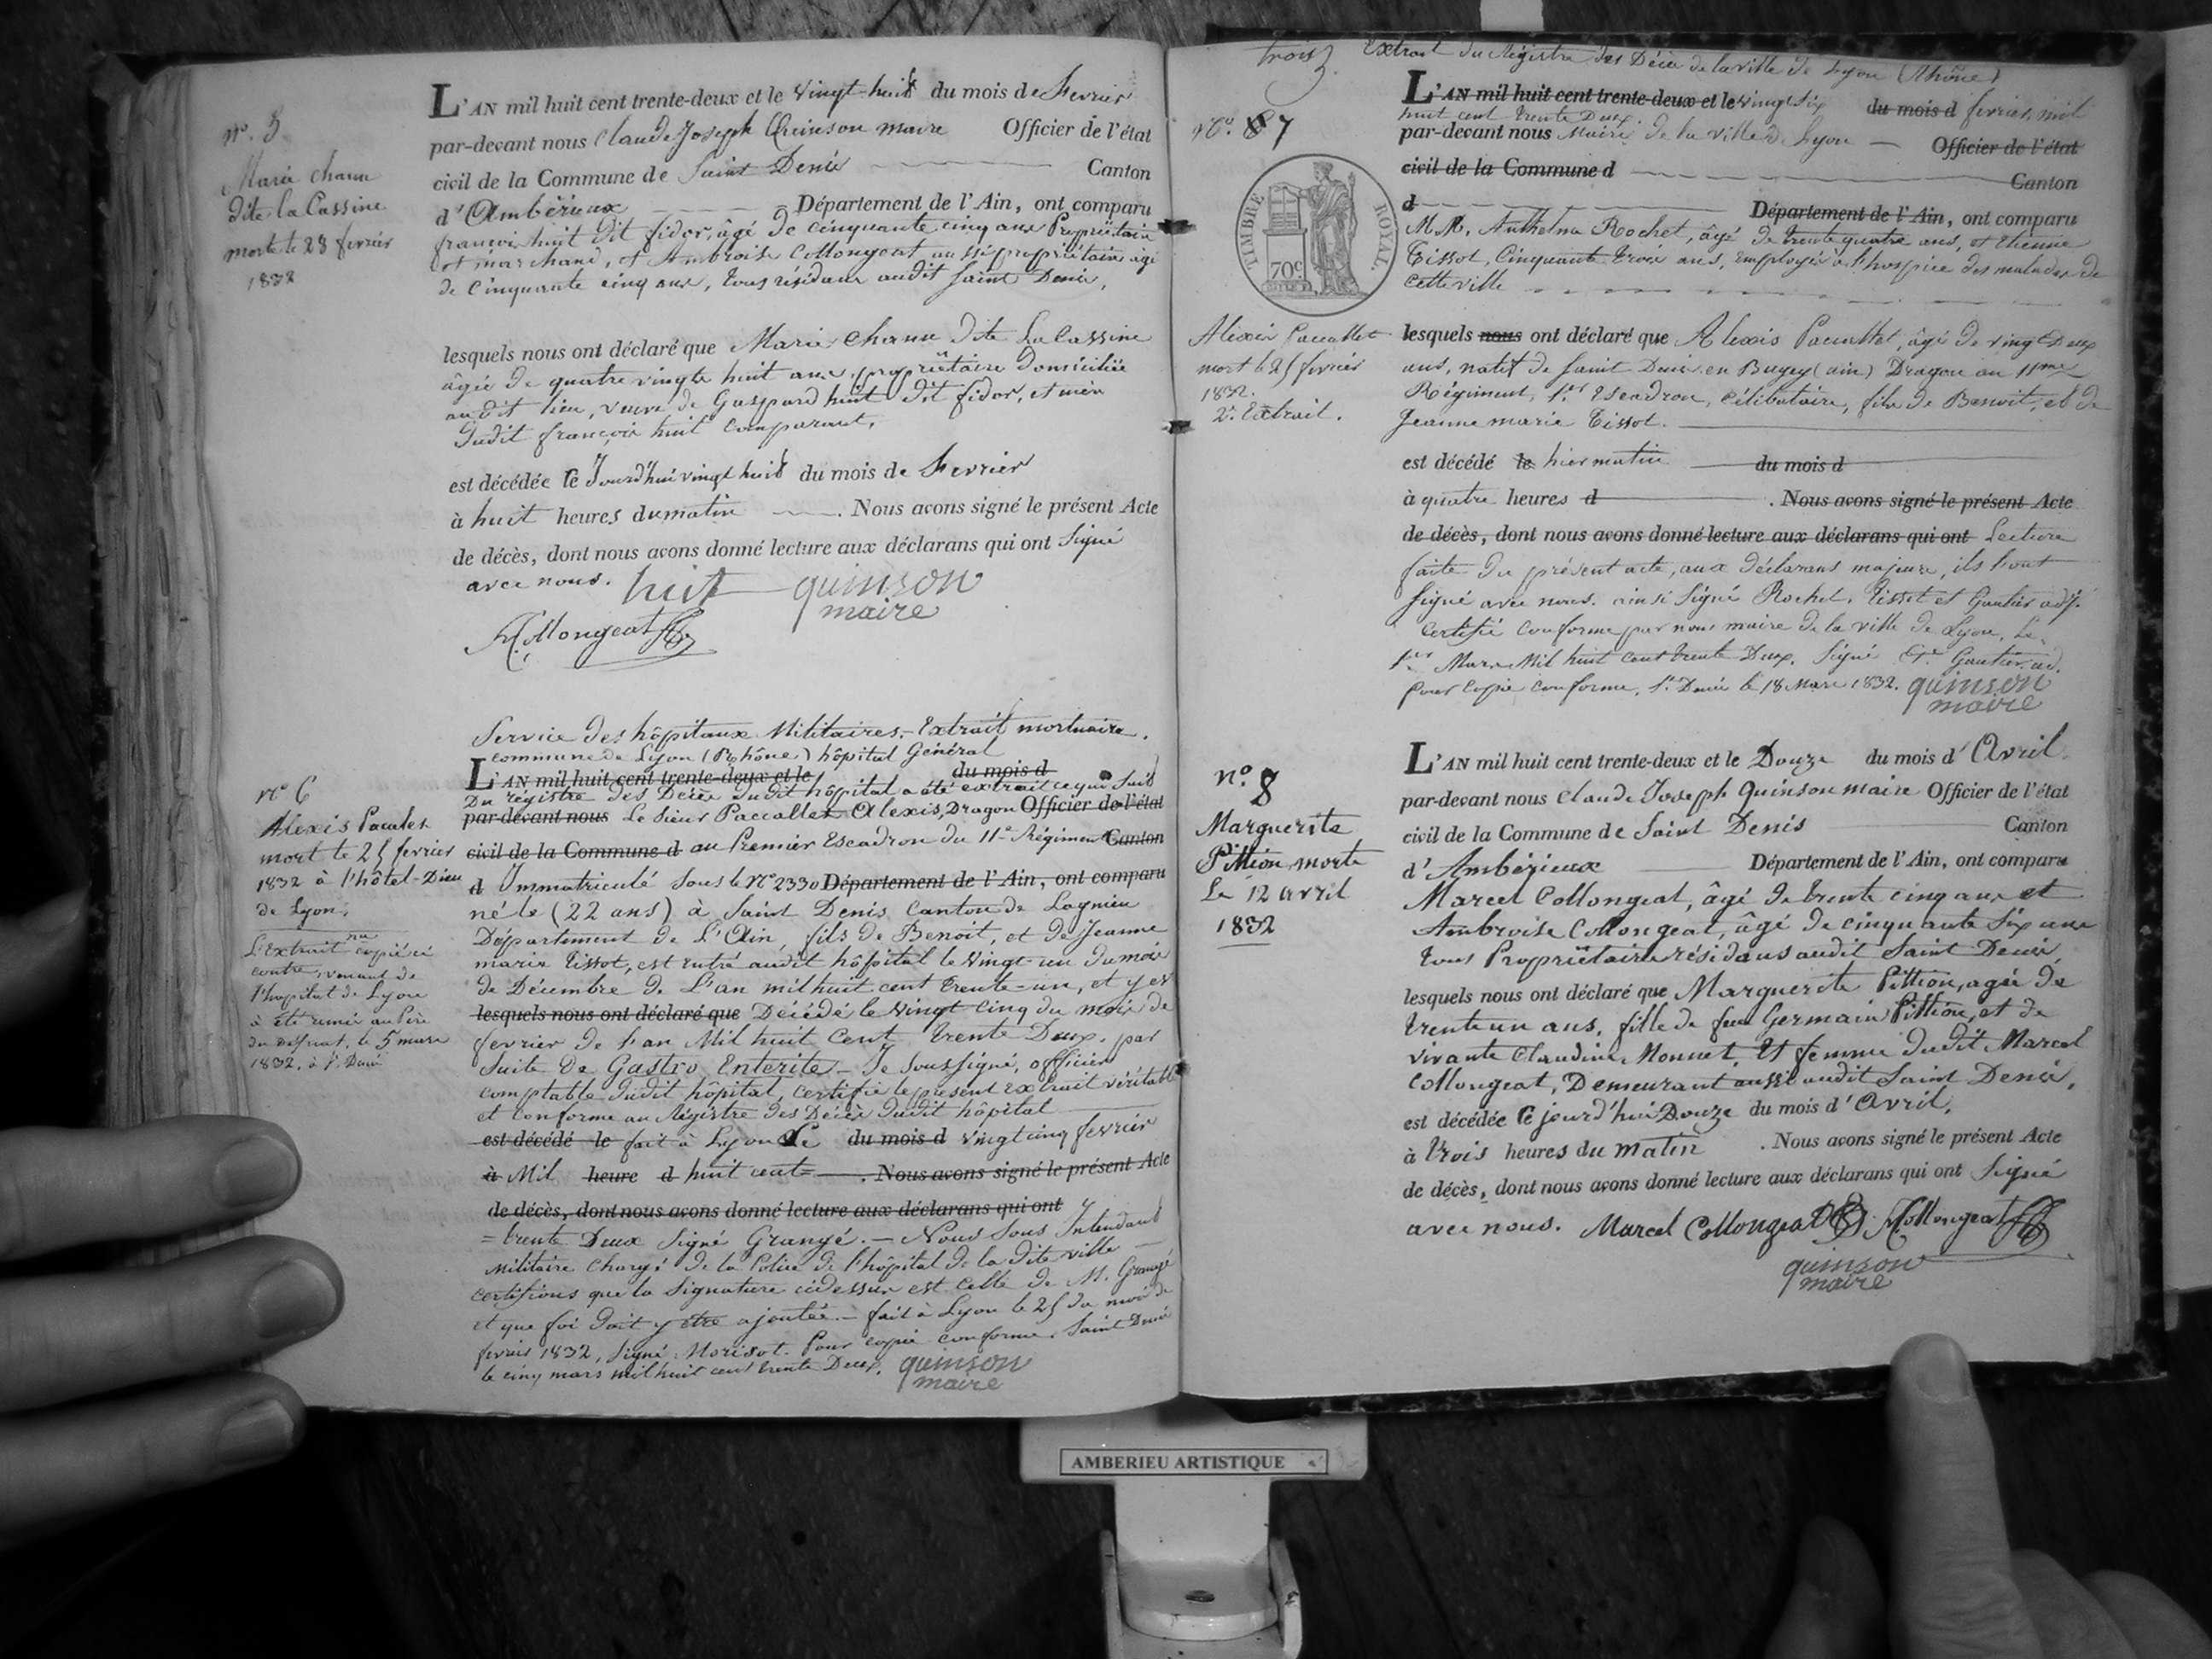 nº. 5
Marie Chanu
dite la Cassine
morte le 28 fevrier
1832
L'AN mil huit cent trente-deux et le vingt-huit du mois de Fevrier
par-devant nous Claude Joseph Quinson maire Officier de l'état
civil de la Commune de Saint Denis Canton
d'Ambérieux Département de l'Ain, ont comparu
françois huit dit fidor, âgé de cinquante cinq ans Propriétaire
et marchand, et Ambroise Collongeat aussi propriétaire agé
de Cinquante cinq ans, tous résidans audit Saint Denis,
lesquels nous ont déclaré que Marie Chanu dite La Cassine
âgée de quatre vingts huit ans, propriétaire domiciliée
audit lieu, veuve de Gaspard huit dit fidor, et mère
dudit françois huit comparant,
est décédée ce Jourd'hui vingt huit du mois de Fevrier
à huit heures du matin . Nous avons signé le présent Acte
de décès, dont nous avons donné lecture aux déclarans qui ont Signé
avec nous. huit quinson
maire
A. Collongeat
nº 6
Alexis Pacalet
mort le 25 fevrier
1832 à l'hôtel-Dieu
de Lyon.
L'Extrait copié ci
contre, venant de
l'hopital de Lyon
à été remis au Père
du deffunt, le 5 mars
1832. à St. Denis
Service des hôpitaux Militaires.- Extrait mortuaire.
commune de Lyon (Rhône) hôpital Général
L'AN mil huit cent trente-deux et le du mois d
Du régistre des Décès dudit hôpital a été extrait ce qui Suit
par-devant nous Le Sieur Paccallet Alexis, Dragon Officier de l'état
civil de la Commune d au Premier Escadron du 11e Régiment Canton
d Immatriculé Sous le Nº 2330 Département de l'Ain, ont comparu
né le (22 ans) à Saint Denis Canton de Lagnieu
Département de L'Ain, fils de Benoit, et de Jeanne
marie Tissot, est entré audit hôpital le Vingt-un du mois
de Décembre de L'an mil huit cent trente-un, et y est
lesquels nous ont déclaré que Décédé le Vingt cinq du mois de
fevrier de l'an Mil huit Cent trente Deux, par
Suite de Gastro Entérite - Je Soussigné, officier
comptable dudit hôpital, certifie le présent Extrait véritable
et conforme au Régistre des Décès dudit hôpital
est décédé le fait à Lyon Le du mois d vingt cinq fevrier
à Mil heure d huit cent= . Nous avons signé le présent Acte
de décès, dont nous avons donné lecture aux déclarans qui ont
= trente Deux Signé Grangé. - Nous Sous Intendant
Militaire Chargé de la Police de l'hôpital de la dite ville
certifions que la Signature cidessus est Celle de M. Grangé
et que foi doit y être ajoutée. - fait à Lyon le 25 du mois de
fevrier 1832, Signé: Morisot. Pour copie conforme. Saint Denis
le cinq mars mil huit cent trente Deux. quinson
maire
trois Extrait du Régistre des Décès de la ville de Lyon (Rhône)
nº. 7
TIMBRE ROYAL.
70c
Alexis Paccallet
mort le 25 fevrier
1832.
2e. Extrait.
L'AN mil huit cent trente-deux et le vingt Six du mois d fevrier mil
huit cent trente Deux.
par-devant nous Maire de la ville de Lyon — Officier de l'état
civil de la Commune d Canton
d Département de l'Ain, ont comparu
M.M. Anthelme Rochet, âgé de trente quatre ans, et Etienne
Tissot, Cinquante trois ans, employés à l'hospice des malades de
cette ville
lesquels nous ont déclaré que Alexis Paccallet, âgé de vingt Deux
ans, natif de Saint Denis en Bugey (ain) Dragon au 11me
Régiment, 1er Escadron, célibataire, fils de Benoit, et de
Jeanne marie Tissot.
est décédé le hier matin du mois d
à quatre heures d . Nous avons signé le présent Acte
de décès, dont nous avons donné lecture aux déclarans qui ont Lecture
faite du présent acte, aux déclarans majeurs, ils l'ont
Signé avec nous. ainsi Signé Rochet, Tissot et Gautier adj.
Certifié conforme par nous maire de la ville de Lyon, Le
1er Mars Mil huit Cent trente Deux. Signé Gautier ad.
pour Copie conforme, St. Denis le 18 Mars 1832. quinson
maire
nº. 8
Marguerite
Pittion morte
Le 12 avril
1832
L'AN mil huit cent trente-deux et le Douze du mois d'Avril
par-devant nous Claude Joseph Quinson maire Officier de l'état
civil de la Commune de Saint Denis Canton
d'Ambérieux Département de l'Ain, ont comparu
Marcel Collongeat, âgé de trente cinq ans et
Ambroise Collongeat, âgé de cinquante Six ans
tous Propriétaires résidans audit Saint Denis
lesquels nous ont déclaré que Marguerite Pittion, agée de
trente un ans, fille de feu Germain Pittion, et de
vivante Claudine Monnet, Et femme dudit Marcel
Collongeat, Demeurant aussi audit Saint Denis,
est décédée ce jourd'hui Douze du mois d'Avril,
à trois heures du matin . Nous avons signé le présent Acte
de décès, dont nous avons donné lecture aux déclarans qui ont Signé
avec nous. Marcel Collongeat A. Collongeat
quinson
maire
AMBERIEU ARTISTIQUE